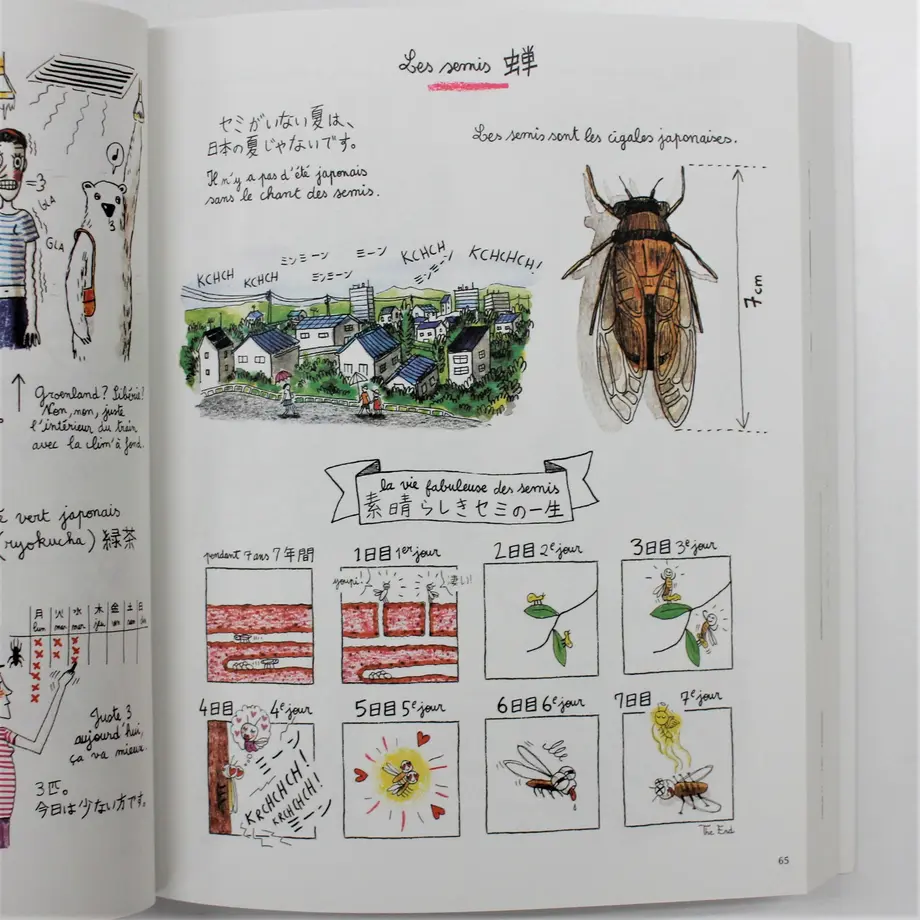 GLA
GLA
Groenland? Sibérie!
Non, non, juste
l'intérieur du train
avec la clim' à fond.
vert japonais
(ryokucha) 緑茶
月 火 水 木 金 土 日
lun mar mer jeu ven sam
Juste 3
aujourd'hui,
ça va mieux.
3匹。
今日は少ない方です。
Les semis 蝉
セミがいない夏は、
日本の夏じゃないです。
Il n'y a pas d'été japonais
sans le chant des semis.
Les semis sont les cigales japonaises.
KCHCH
KCHCH
ミンミーン
ミンミーン
ミーン
KCHCH
ミンミーン
KCHCHCH!
7cm
la vie fabuleuse des semis
素晴らしきセミの一生
pendant 7 ans 7年間
1日目 1er jour
youpi!
凄い!
2日目 2e jour
3日目 3e jour
4日目 4e jour
KRCHCHCH!
KRCHCHCH!
5日目 5e jour
6日目 6e jour
7日目 7e jour
The End
65